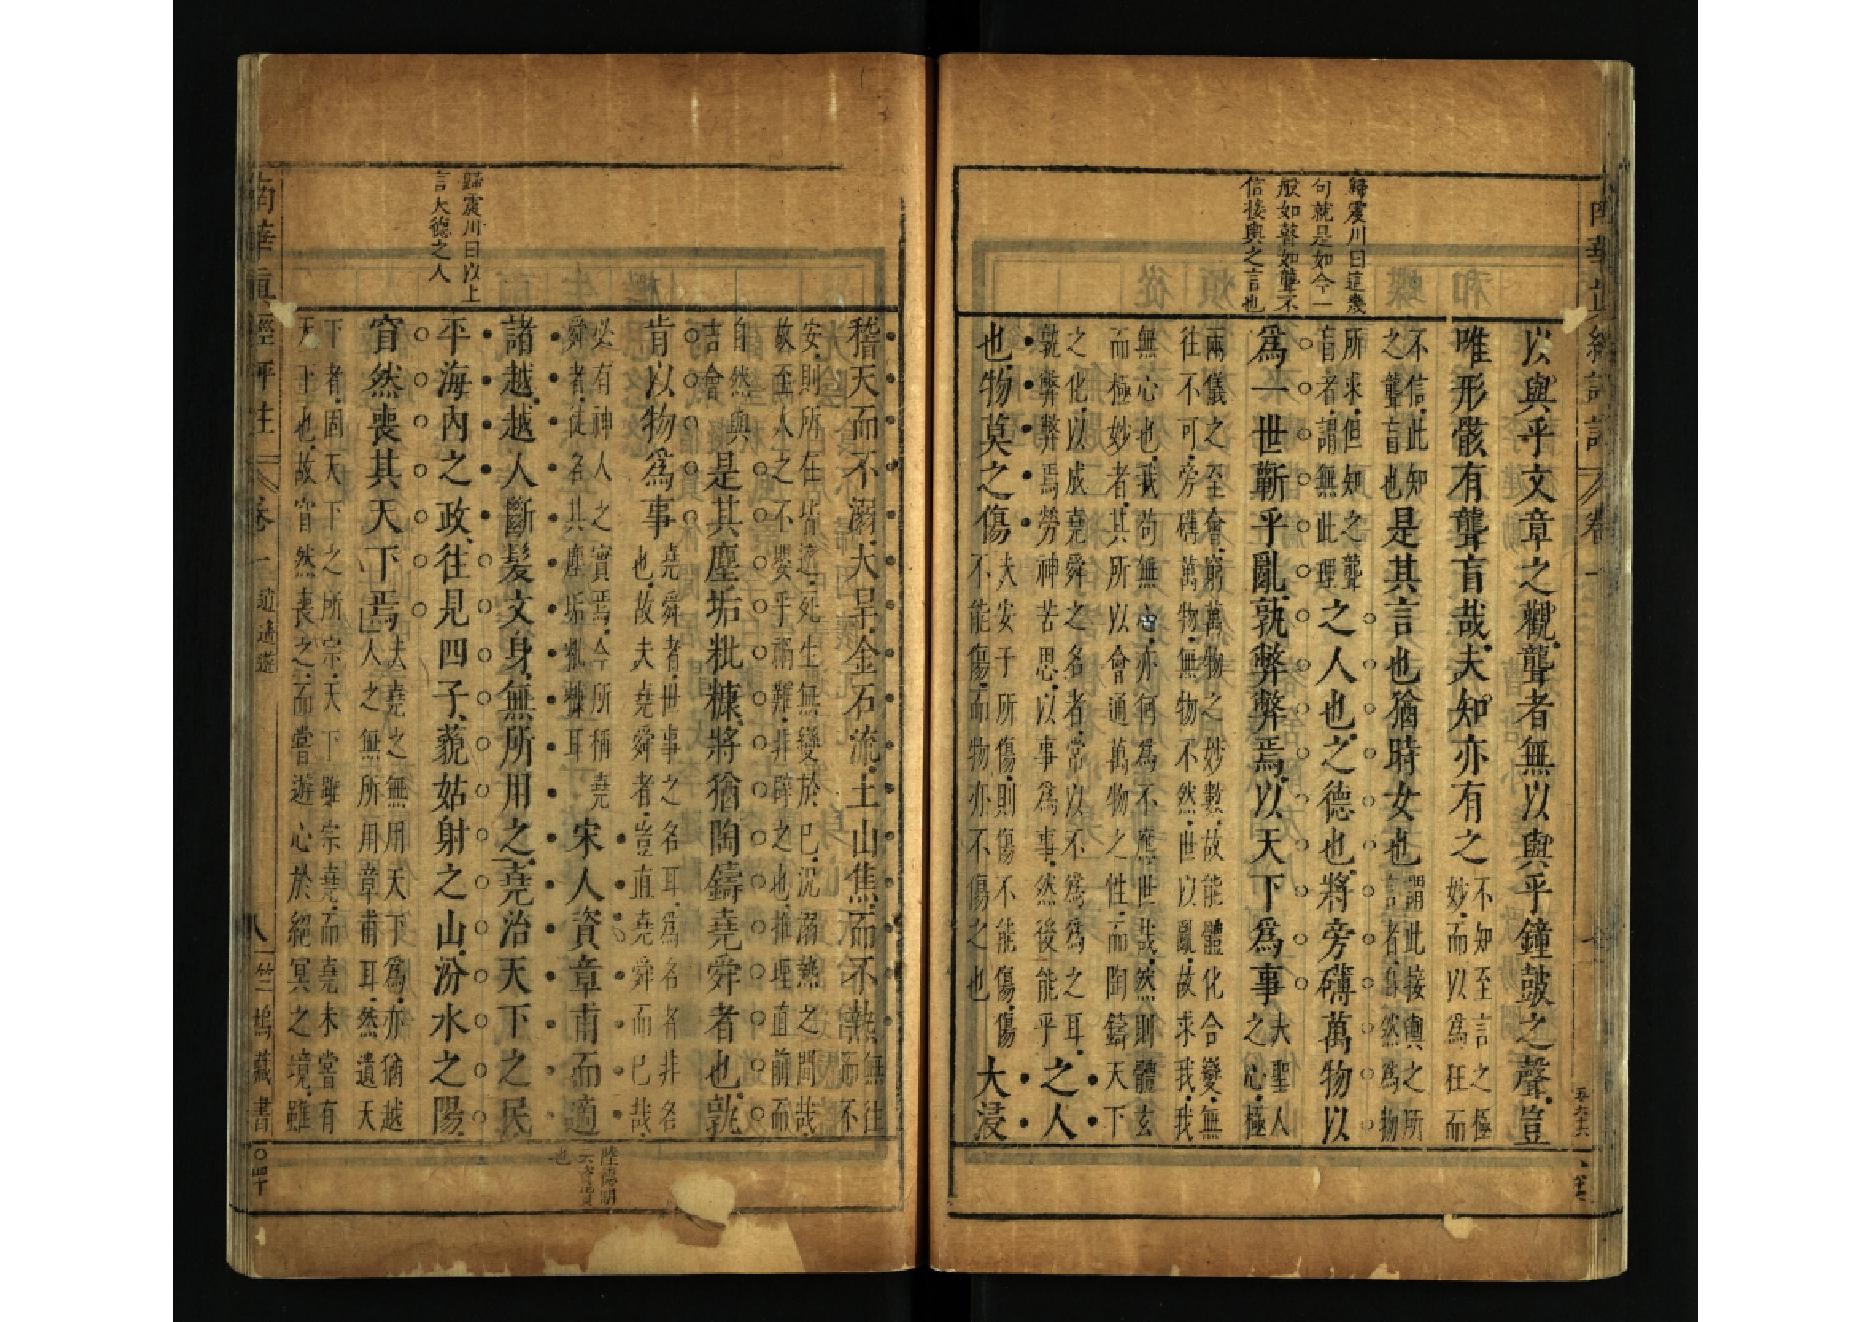 南華眞經評註
卷一
歸震川曰這幾
句就是如今一
般如瞽如聾不
信接輿之言也
以與乎文章之觀聾者無以與乎鐘鼓之聲豈
唯形骸有聾盲哉夫知亦有之不知至言之極妙而以爲狂而
不信此知之聾盲也是其言也猶時女也謂此接輿之所言者自然爲物
所求但知之聾盲者謂無此理之人也之德也將旁礴萬物以
爲一世蘄乎亂孰弊弊焉以天下爲事夫聖人之心極
兩儀之至會窮萬物之妙數故能體化合變無往不可旁礴萬物無物不然世以亂故求我我
無心也我苟無心亦何爲不應世哉然則體玄而極妙者其所以會通萬物之性而陶鑄天下
之化以成堯舜之名者常以不爲爲之耳孰弊弊焉勞神苦思以事爲事然後能乎之人
也物莫之傷夫安于所傷則傷不能傷傷不能傷而物亦不傷之也大浸
歸震川曰以上
言大德之人
稽天而不溺大旱金石流土山焦而不熱無往而不
安則所在皆適死生無變於已況溺熱之間哉故至人之不嬰乎禍難非辟之也推理直前而
自然與吉會是其塵垢粃糠將猶陶鑄堯舜者也孰
肯以物爲事堯舜者世事之名耳爲名者非名也故夫堯舜者豈直堯舜而已哉
必有神人之實焉今所稱堯舜者徒名其塵垢粃糠耳宋人資章甫而適
諸越越人斷髮文身無所用之堯治天下之民
平海內之政往見四子藐姑射之山汾水之陽
窅然喪其天下焉夫堯之無用天下爲亦猶越人之無所用章甫耳然遺天
下者固天下之所宗天下雖宗堯而堯未嘗有天下也故窅然喪之而嘗遊心於絕冥之境雖
陸德明
云資貨
也
南華眞經評註
卷一
逍遙遊
八
竺塢藏書